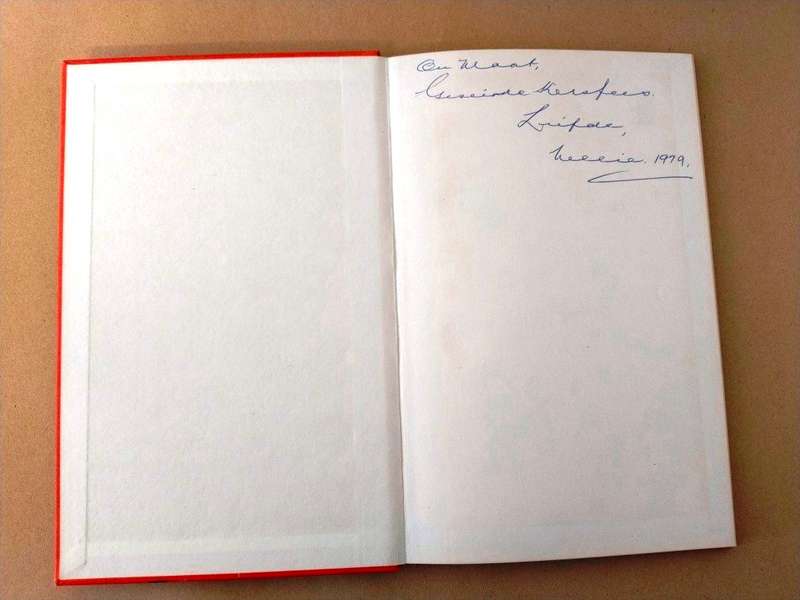 Ou Maat,
Geseënde Kersfees.
Liefde,
Nellie. 1979.